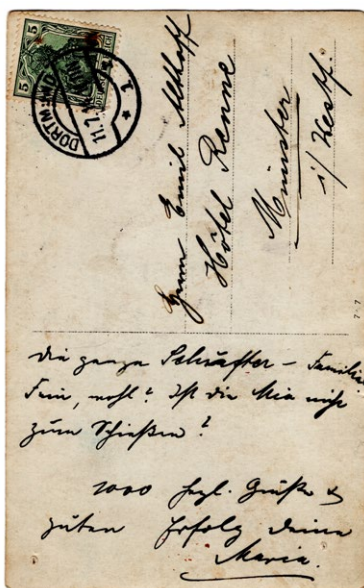 5 5
DORTMUND
11.7.
* 1
Herrn Emil Althoff
Hôtel Renne
Münster
i/Westf.
Die ganze Schäffer – Familie
Fein, wohl? Ist die Mia nicht
zum Schießen?
1000 hzl. Grüße &
guten Erfolg Deine
Maria.